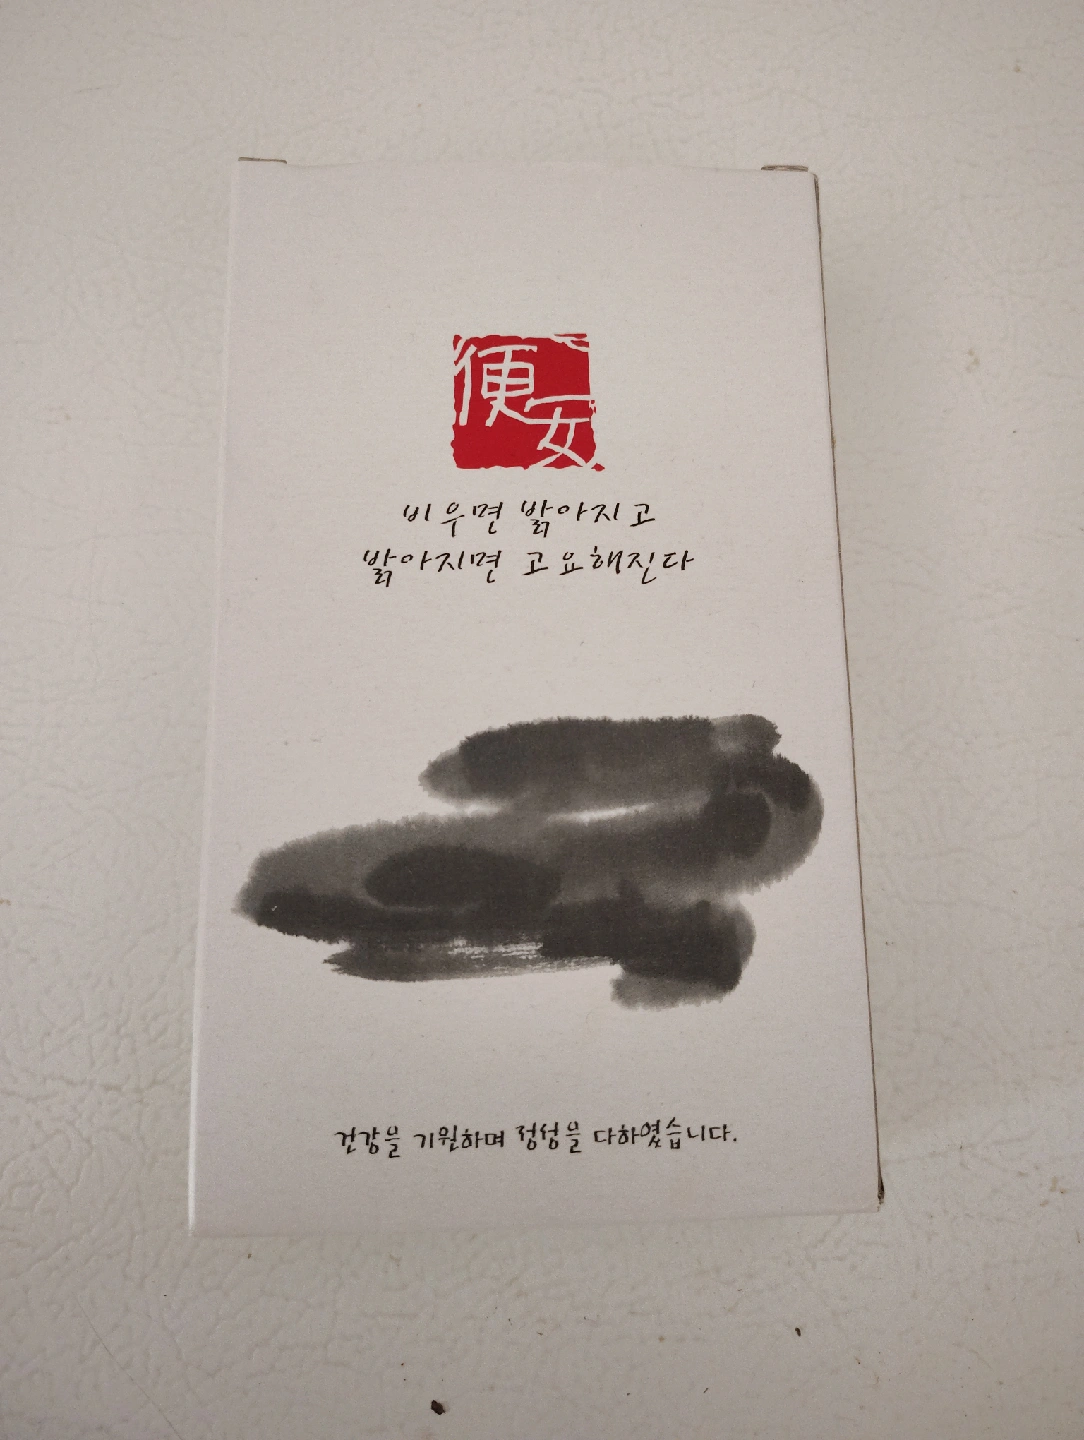 便安
비우면 밝아지고
밝아지면 고요해진다
건강을 기원하며 정성을 다하였습니다.